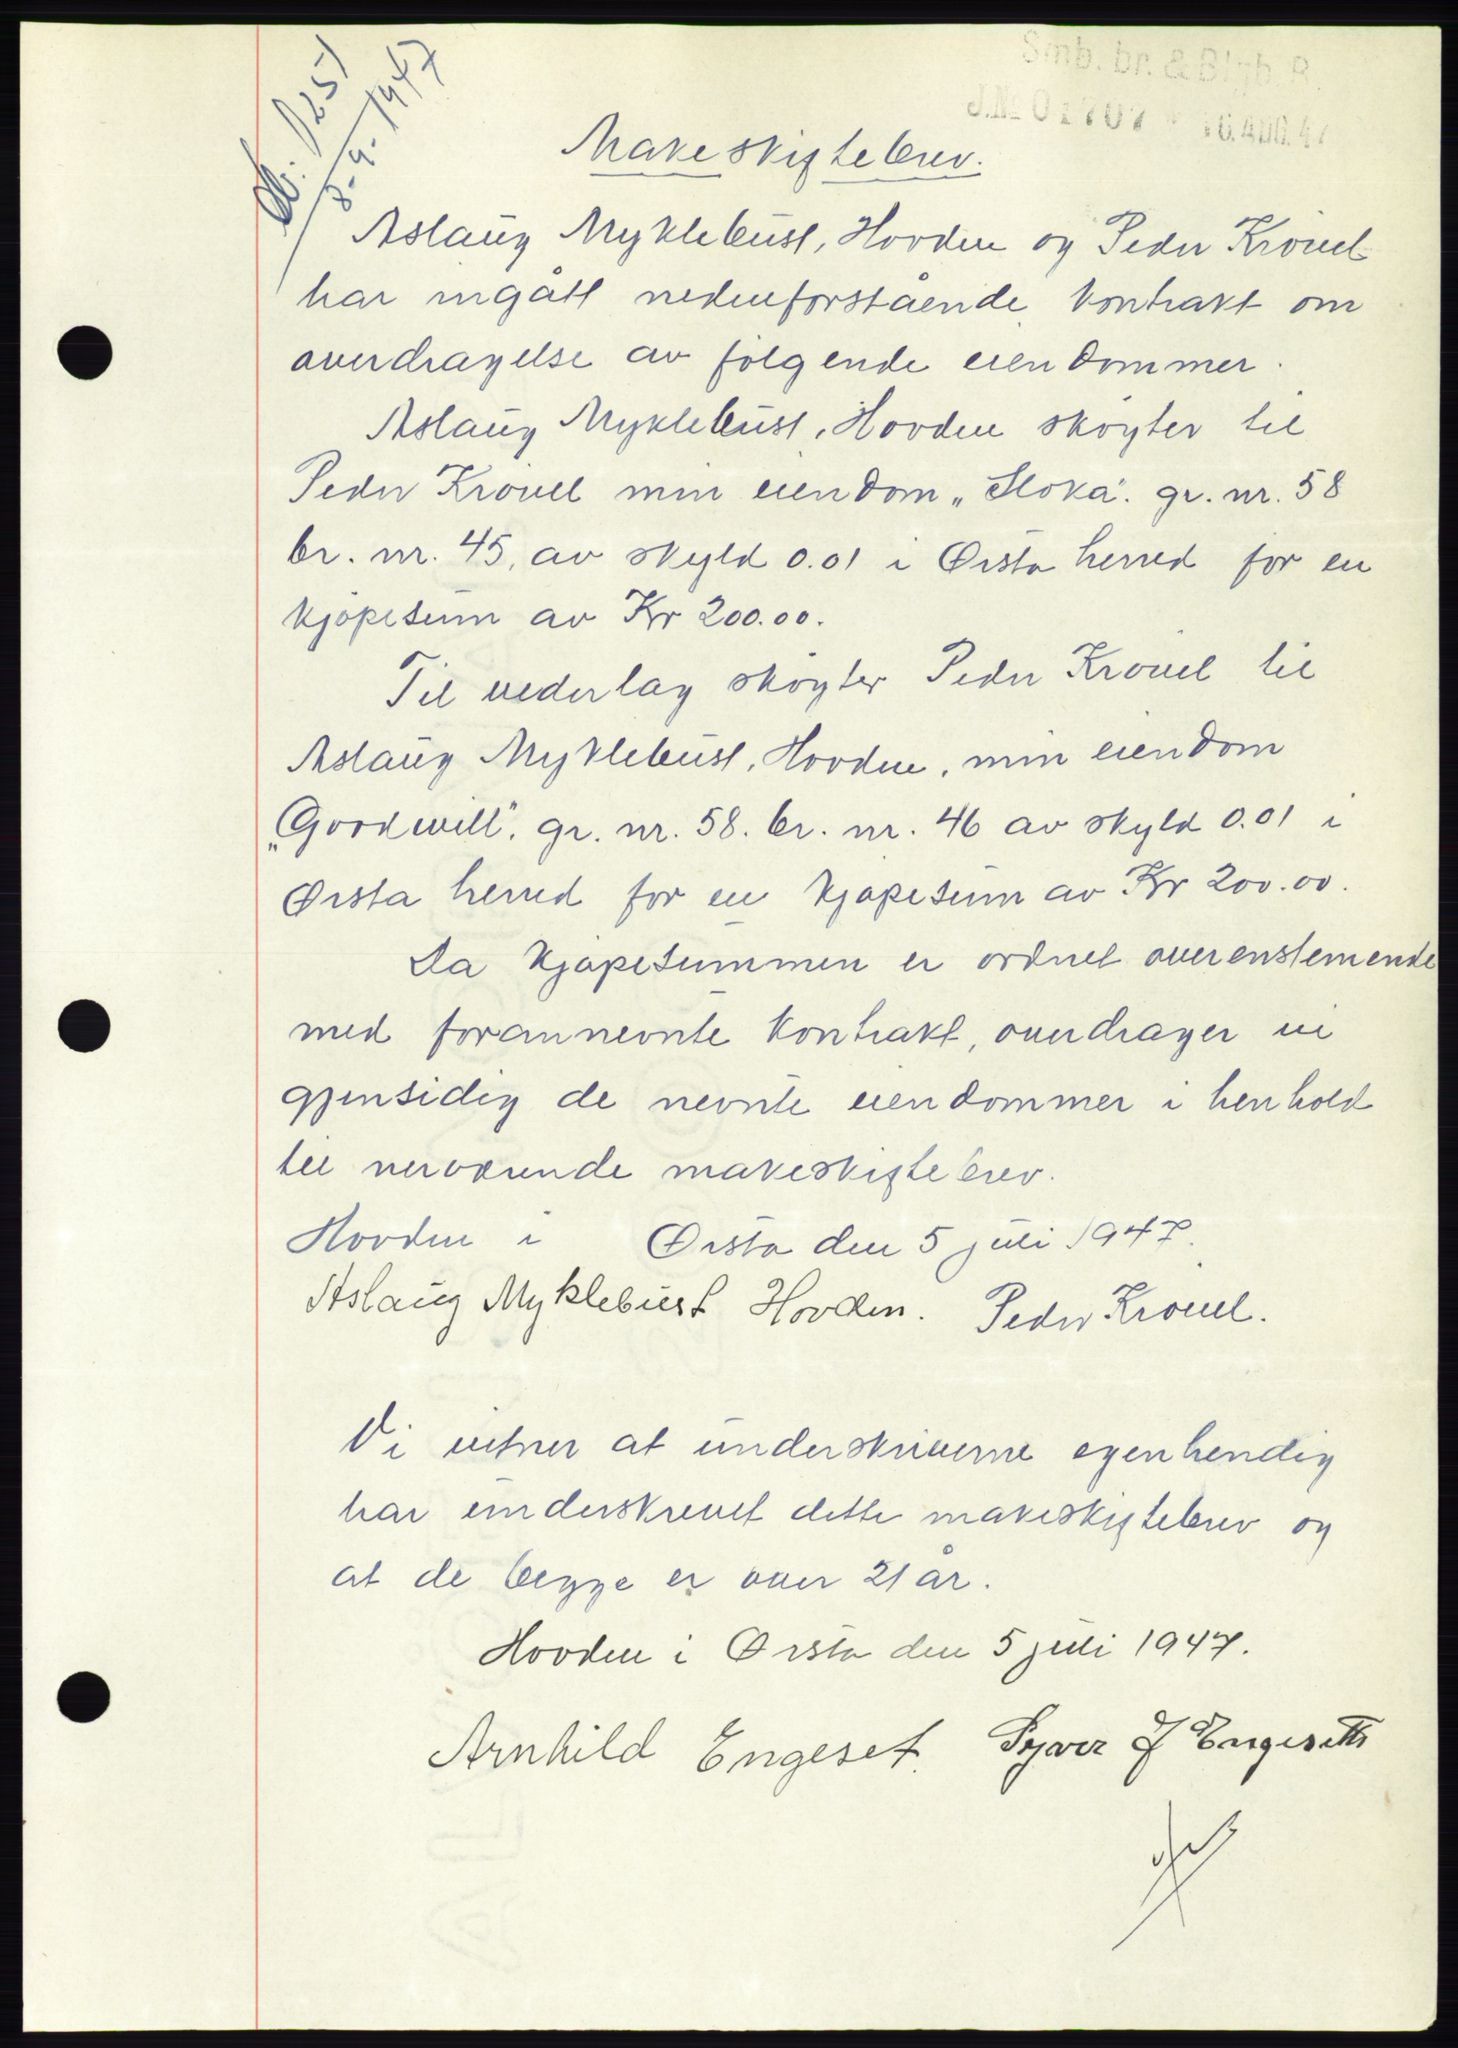 1251
8-9-1947
Smb. br. & Blgb. R.
Makeskiftebrev.
Aslaug Myklebust, Hovden og Peder Krövel
har ingått nedenforstående kontrakt om
overdragelse av følgende eiendommer.
Aslaug Myklebust, Hovden skøyter til
Peder Krövel min eiendom „Stoka". gr. nr. 58
br. nr. 45, av skyld 0.01 i Ørsta herred for en
kjøpesum av Kr 200.00.
Til vederlag skøyter Peder Krövel til
Aslaug Myklebust, Hovden, min eiendom
„Goodwill". gr. nr. 58. br. nr. 46 av skyld 0.01 i
Ørsta herred for en kjøpesum av Kr 200.00.
Da kjøpesummen er ordnet overenstemende
med forannevnte kontrakt, overdrager vi
gjensidig de nevnte eiendommer i henhold
til nerværende makeskiftebrev.
Hovden i Ørsta den 5 juli 1947.
Aslaug Myklebust Hovden. Peder Krövel.
Vi vitner at underskriverne egenhendig
har underskrevet dette makeskiftebrev og
at de begge er over 21 år.
Hovden i Ørsta den 5 juli 1947.
Arnhild Engeset. Syver J Engeseth